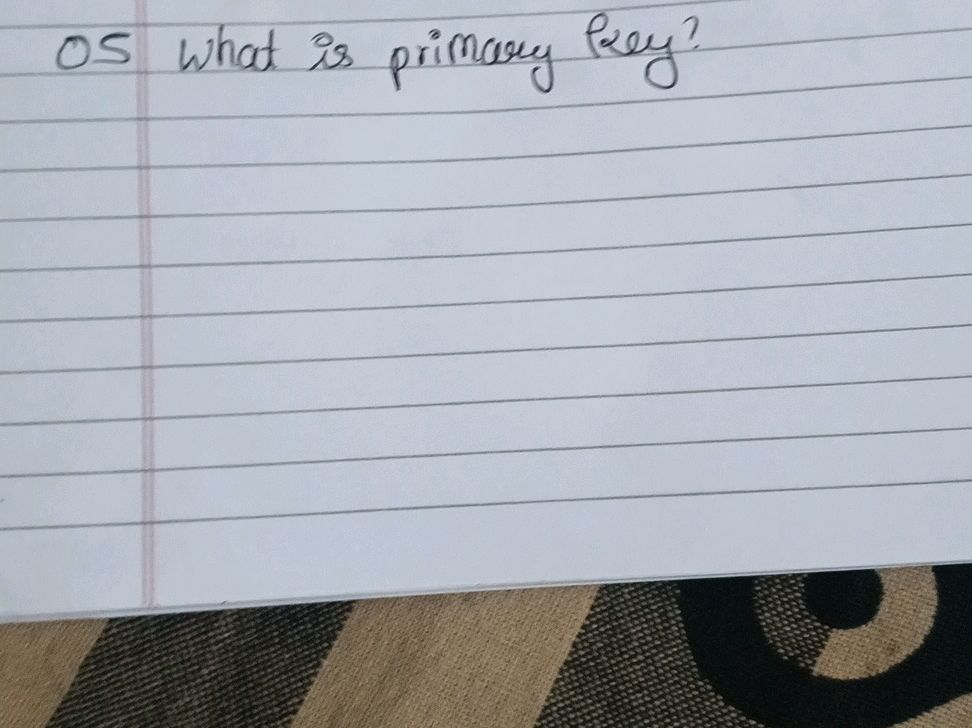 05 What is primary key?